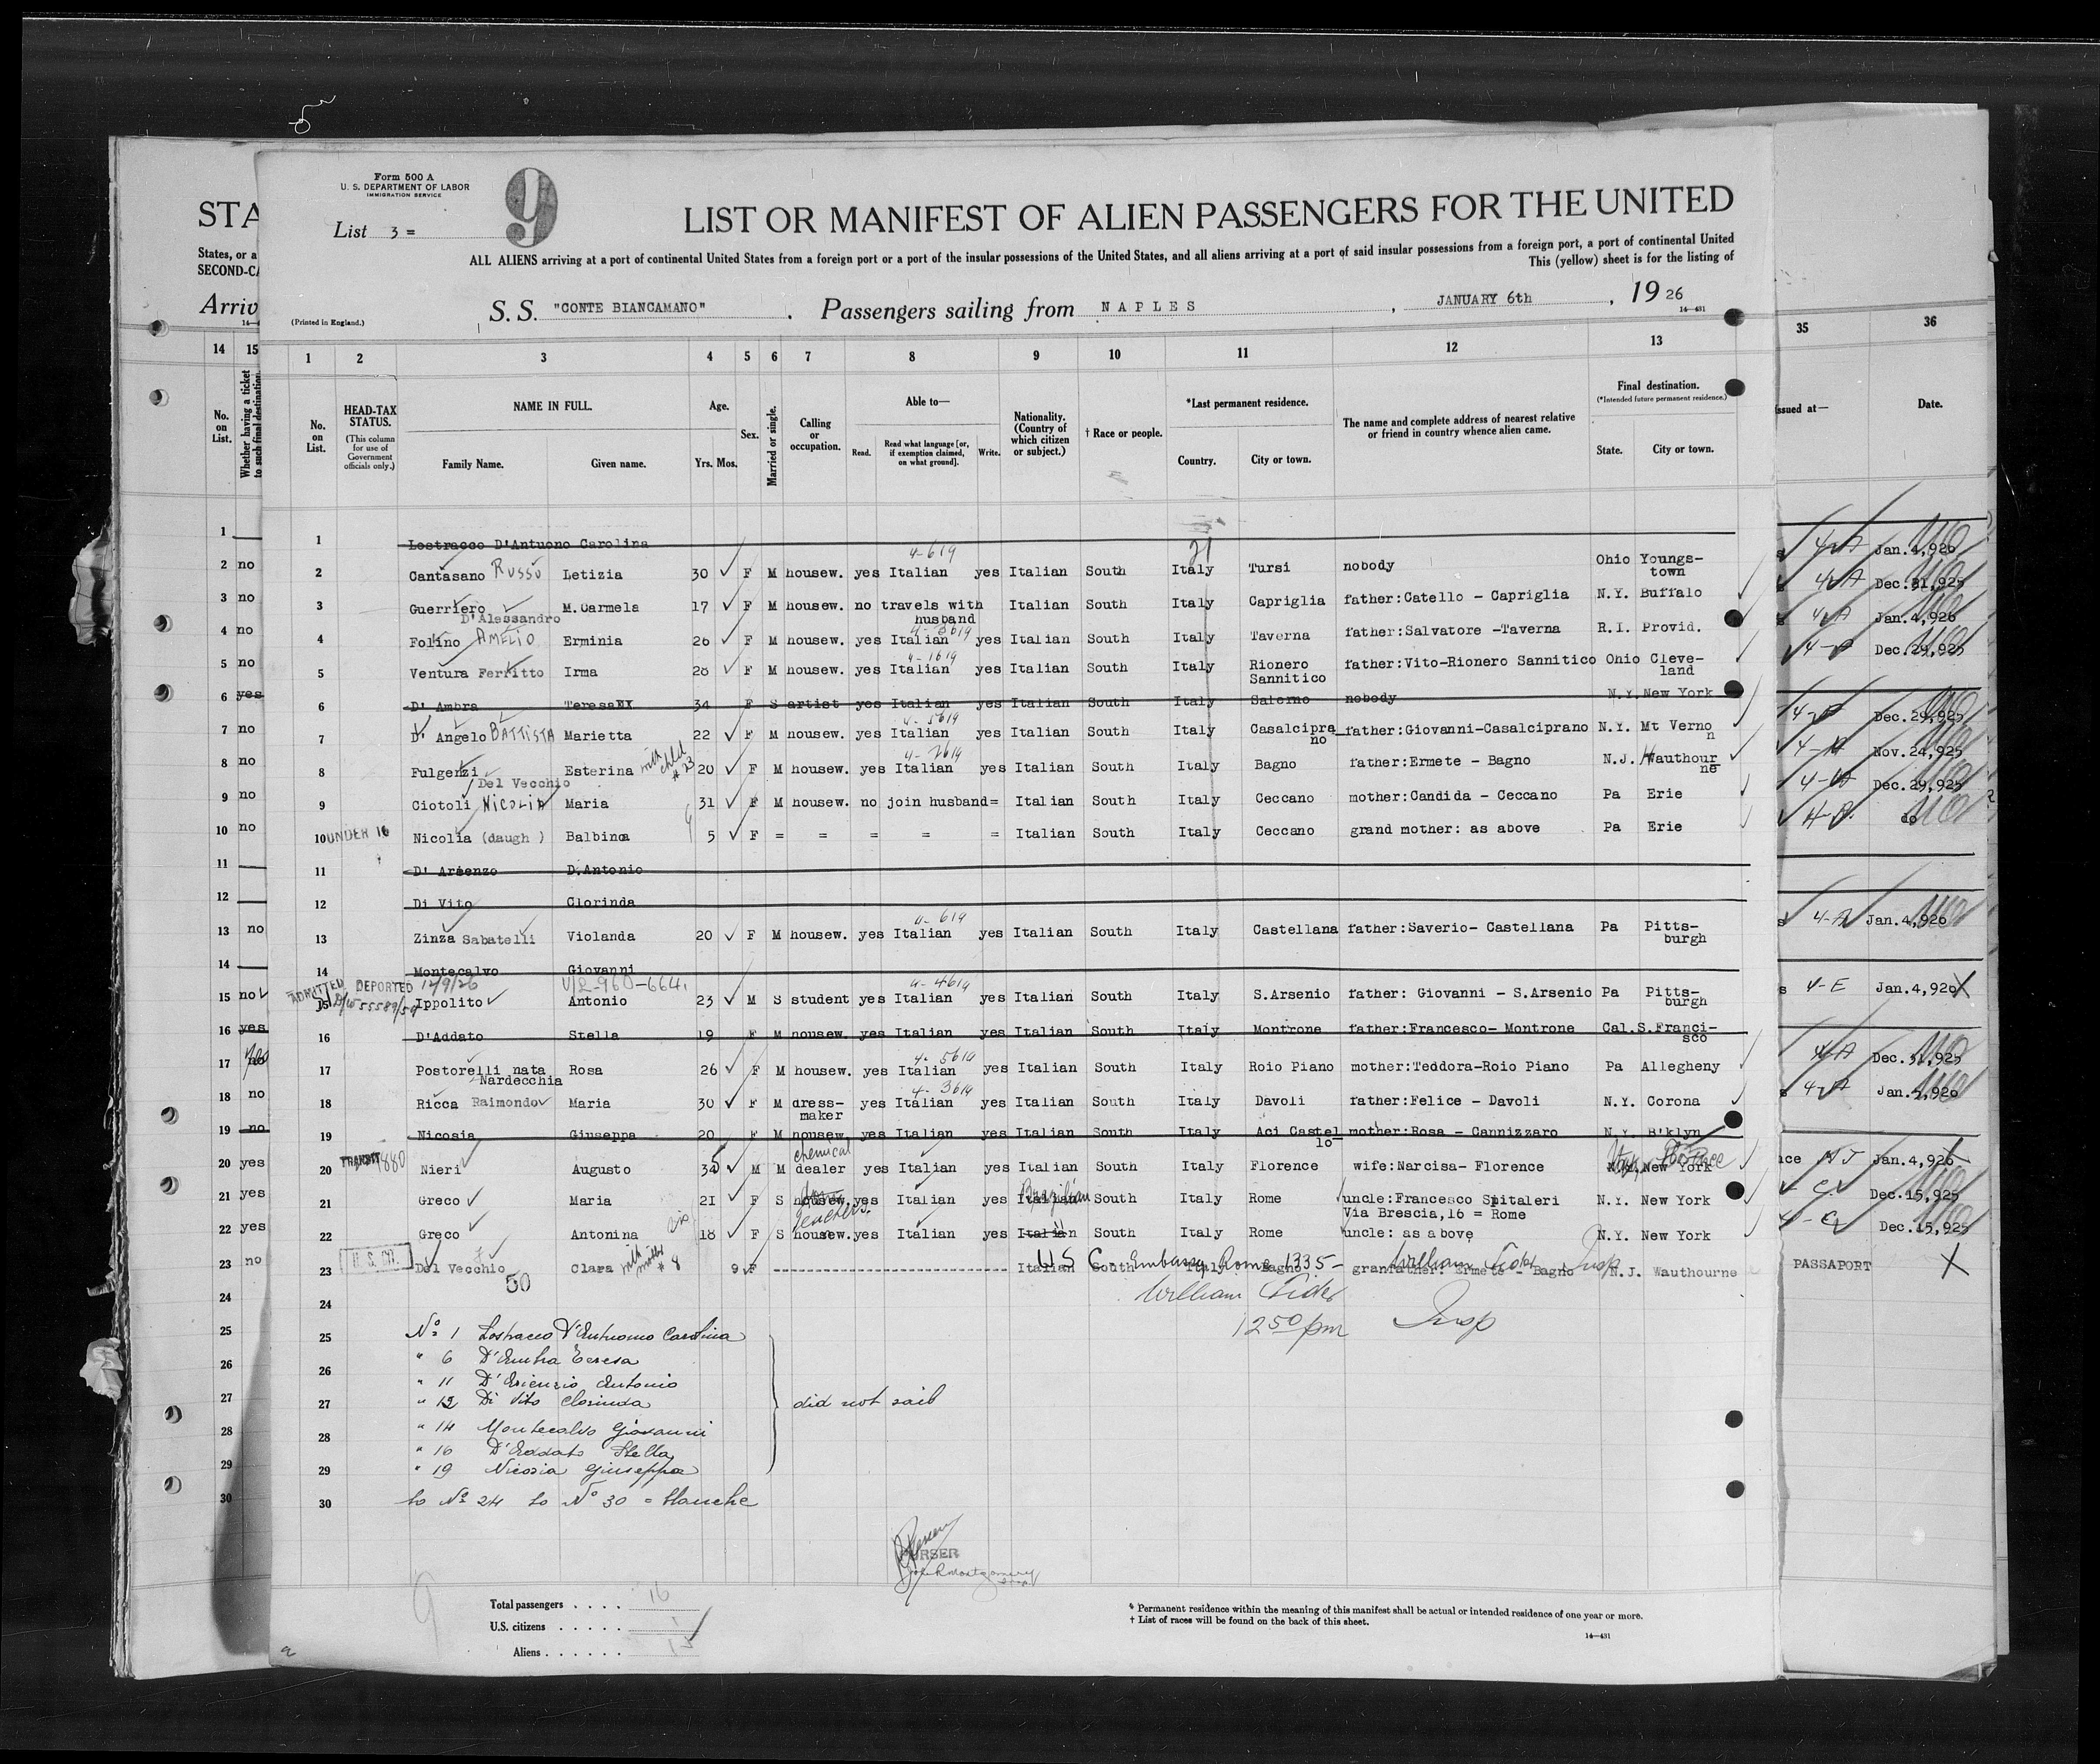 Form 500 A
U. S. DEPARTMENT OF LABOR
IMMIGRATION SERVICE
List 3 =
9
LIST OR MANIFEST OF ALIEN PASSENGERS FOR THE UNITED
ALL ALIENS arriving at a port of continental United States from a foreign port or a port of the insular possessions of the United States, and all aliens arriving at a port of said insular possessions from a foreign port, a port of continental United
This (yellow) sheet is for the listing of
STA
States, or a
SECOND-CA
Arriv
(Printed in England.)
S. S. "CONTE BIANCAMANO" . Passengers sailing from NAPLES , JANUARY 6th , 19 26
14—431
14 15 1 2 3 4 5 6 7 8 9 10 11 12 13 35 36
No. on List.
Whether having a ticket to such final destination.
No. on List.
HEAD-TAX STATUS.
(This column for use of Government officials only.)
NAME IN FULL.
Family Name. Given name.
Age.
Yrs. Mos.
Sex.
Married or single.
Calling or occupation.
Able to—
Read. Read what language [or, if exemption claimed, on what ground]. Write.
Nationality. (Country of which citizen or subject.)
† Race or people.
*Last permanent residence.
Country. City or town.
The name and complete address of nearest relative or friend in country whence alien came.
Final destination.
(*Intended future permanent residence.)
State. City or town.
Issued at—
Date.
1 1 Lostracco D'Antuono Carolina
2 no 2 Cantasano Russo Letizia 30 F M housew. yes Italian yes Italian South Italy Tursi nobody Ohio Youngs-town Jan.4,926
3 no 3 Guerriero D'Alessandro M.Carmela 17 F M housew. no travels with husband Italian South Italy Capriglia father:Catello - Capriglia N.Y. Buffalo Dec.31,925
4 no 4 Folino AMELIO Erminia 26 F M housew. yes Italian yes Italian South Italy Taverna father:Salvatore -Taverna R.I. Provid. Jan.4,926
5 no 5 Ventura Ferritto Irma 28 F M housew. yes Italian yes Italian South Italy Rionero Sannitico father:Vito-Rionero Sannitico Ohio Cleve-land Dec.29,925
6 yes 6 D' Ambra Teresa 34 F S artist yes Italian yes Italian South Italy Salerno nobody N.Y. New York
7 no 7 D' Angelo BATTISTA Marietta 22 F M housew. yes Italian yes Italian South Italy Casalciprano father:Giovanni-Casalciprano N.Y. Mt Vernon Dec.29,925
8 no 8 Fulgenzi Del Vecchio Esterina with child #23 20 F M housew. yes Italian yes Italian South Italy Bagno father:Ermete - Bagno N.J. Wauthourne Nov.24,925
9 no 9 Ciotoli NICOLIA Maria 31 F M housew. no join husband= Italian South Italy Ceccano mother:Candida - Ceccano Pa Erie Dec.29,925
10 no 10 UNDER 16 Nicolia (daugh ) Balbina 5 F = = = = = Italian South Italy Ceccano grand mother: as above Pa Erie do
11 11 D' Arienzo D.Antonio
12 12 Di Vito Clorinda
13 no 13 Zinza Sabatelli Violanda 20 F M housew. yes Italian yes Italian South Italy Castellana father:Saverio- Castellana Pa Pitts-burgh 4-A Jan.4,926
14 14 Montecalvo Giovanni
ADMITTED DEPORTED
15 no 15 Ippolito Antonio 23 M S student yes Italian yes Italian South Italy S.Arsenio father: Giovanni - S.Arsenio Pa Pitts-burgh 4-E Jan.4,926
16 yes 16 D'Addato Stella 19 F M housew. yes Italian yes Italian South Italy Montrone father:Francesco- Montrone Cal. S.Franci-sco
17 no 17 Postorelli nata Nardecchia Rosa 26 F M housew. yes Italian yes Italian South Italy Roio Piano mother:Teddora-Roio Piano Pa Allegheny Dec.31,925
18 no 18 Ricca Raimondo Maria 30 F M dress-maker yes Italian yes Italian South Italy Davoli father:Felice - Davoli N.Y. Corona Jan.5,926
19 no 19 Nicosia Giuseppa 20 F M housew. yes Italian yes Italian South Italy Aci Castello mother:Rosa - Cannizzaro N.Y. B'klyn
20 yes 20 TRANSIT Nieri Augusto 34 M M chemical dealer yes Italian yes Italian South Italy Florence wife:Narcisa- Florence N.Y. New York Jan.4,926
21 yes 21 Greco Maria 21 F S housew. yes Italian yes Italian Brazilian South Italy Rome uncle:Francesco Spitaleri Via Brescia,16 = Rome N.Y. New York Dec.15,925
22 yes 22 Greco Antonina 18 F S housew. teachers. yes Italian yes Italian South Italy Rome uncle: as above N.Y. New York Dec.15,925
23 no 23 Del Vecchio Clara with mother #8 9 F Italian South Italy Bagno granfather: Ermete - Bagno N.J. Wauthourne PASSAPORT
U S C. Embassy Rome 1335-
50
24 24
William
12 50 pm Insp
25 25 No. 1 Lostracco D'Antuono Carolina
26 26 " 6 D'Ambra Teresa
" 11 D'Arienzio Antonio
27 27 " 12 Di Vito Clorinda did not sail
28 28 " 14 Montecalvo Giovanni
" 16 D'Addato Stella
29 29 " 19 Nicosia Giuseppa
30 30 to No 24 to No 30 = blanche
PURSER
Total passengers . . . . 16
U.S. citizens . . . . . 1
Aliens . . . . . . 15
* Permanent residence within the meaning of this manifest shall be actual or intended residence of one year or more.
† List of races will be found on the back of this sheet.
14—431